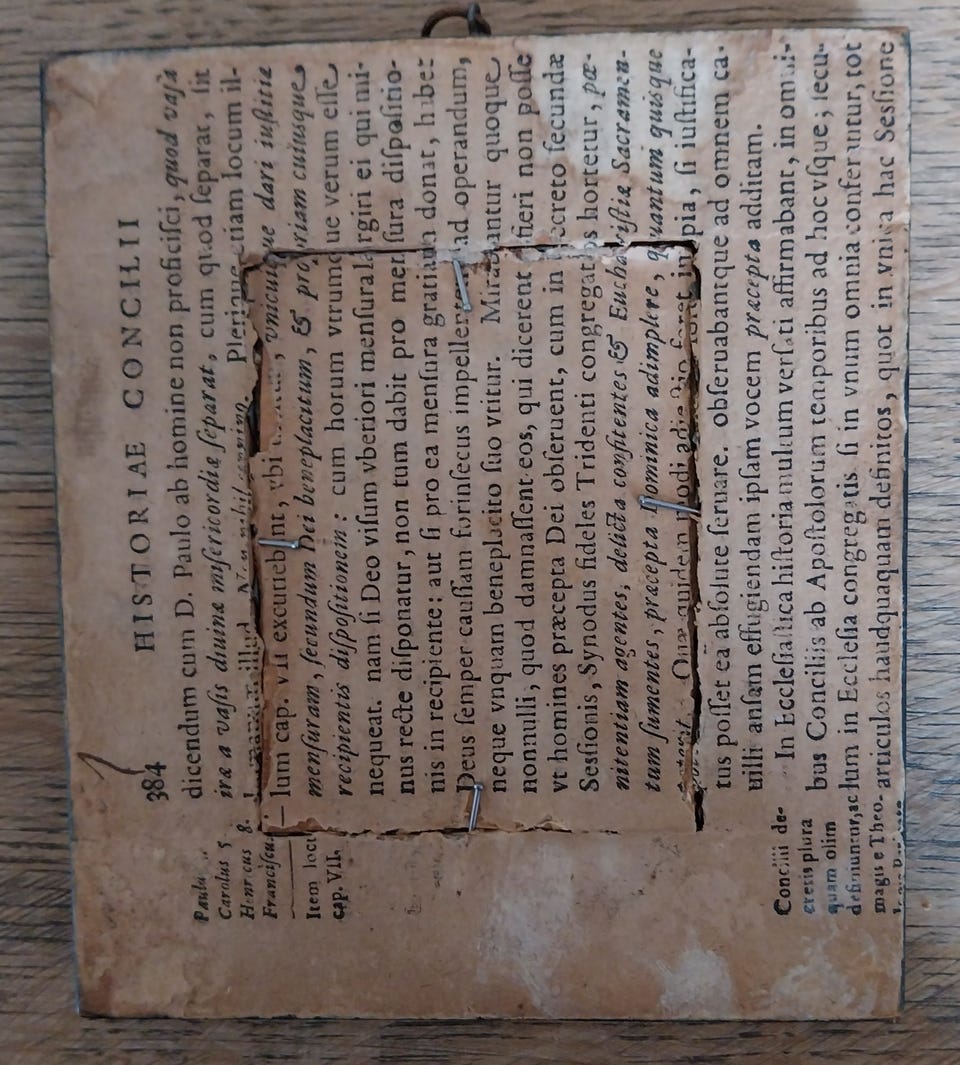 384
HISTORIAE CONCILII
dicendum cum D. Paulo ab homine non proficiſci, quod vaſa
iræ a vaſis diuinæ miſericordiæ ſeparat, cum quod ſeparat, ſit
Plerique etiam locum il-
lum cap. VII excutiebant, vbi, vnicuique dari iuſtitiæ
menſuram, ſecundum Dei beneplacitum, & propriam cuiuſque
recipientis diſpoſitionem: cum horum vtrunque verum eſſe
nequeat. nam ſi Deo viſum vberiori menſura largiri ei qui mi-
nus recte diſponatur, non tum dabit pro menſura diſpoſitio-
nis in recipiente: aut ſi pro ea menſura gratiam donat, habet
Deus ſemper cauſſam forinſecus impellentem ad operandum,
neque vnquam beneplacito ſuo vtitur. Mirabantur quoque
nonnulli, quod damnaſſent eos, qui dicerent fieri non poſſe
vt homines præcepta Dei obſeruent, cum in decreto ſecundæ
Seſſionis, Synodus fideles Tridenti congregatos hortetur, pœ-
nitentiam agentes, delicta confitentes & Euchariſtiæ Sacramen-
tum ſumentes, præcepta Dominica adimplere, quantum quiſque
poterit. Quæ quidem modi adiectio foret impia, ſi iuſtifica-
tus poſſet ea abſolute ſeruare. obſeruabantque ad omnem ca-
uilli anſam effugiendam ipſam vocem præcepta additam.
In Eccleſiaſtica hiſtoria nullum verſati affirmabant, in omni-
bus Conciliis ab Apoſtolorum temporibus ad hoc vſque; ſecu-
lum in Eccleſia congregatis ſi in vnum omnia conferantur, tot
articulos haudquaquam definitos, quot in vnica hac Seſſione
Carolus 5
Henricus 8.
Franciſcus
Item locus
cap. VII.
Concilii de-
cretis plura
quam olim
definiuntur, ac
magis e Theo-